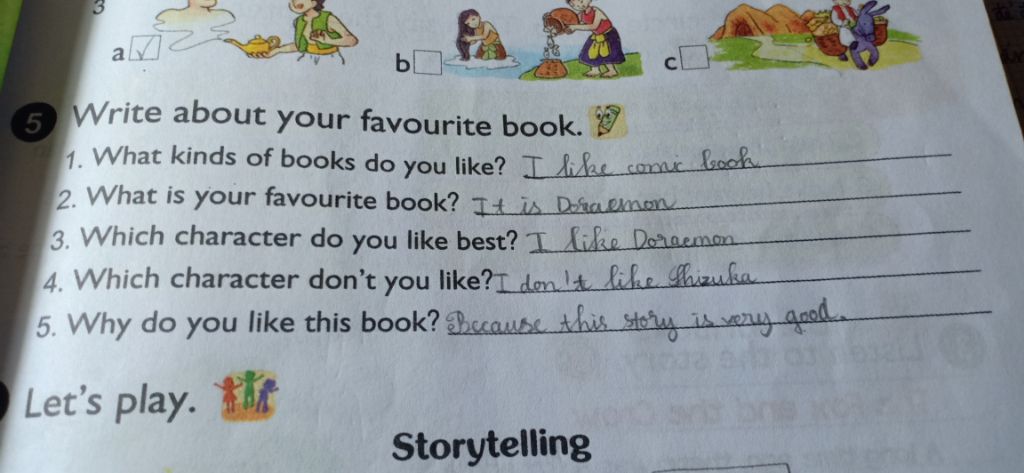 3
a b c
5 Write about your favourite book.
1. What kinds of books do you like? I like comic book
2. What is your favourite book? It is Doraemon
3. Which character do you like best? I like Doraemon
4. Which character don't you like? I don't like Shizuka
5. Why do you like this book? Because this story is very good.
Let's play.
Storytelling